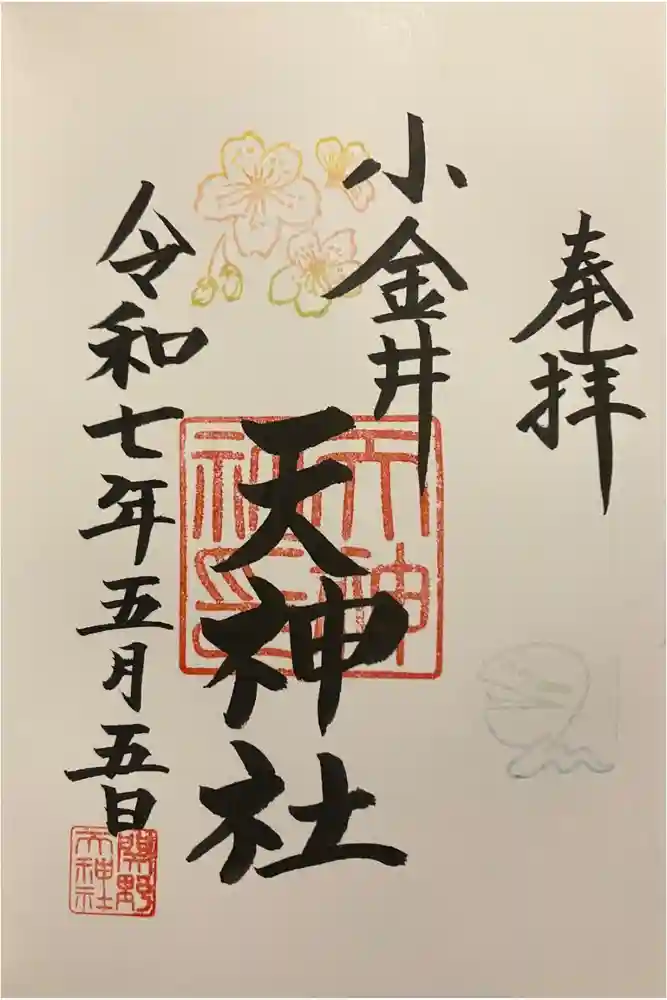 奉拝
小金井
天神社
令和七年五月五日
天神
社印
関野
天神社